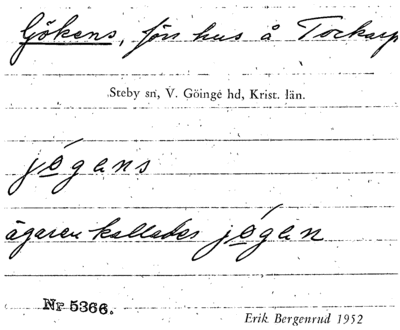 Gökens, förr hus å Tockarp
Steby sn, V. Göinge hd, Krist. län.
jögens
ägaren kallades jögen
Nr 5366.
Erik Bergenrud 1952